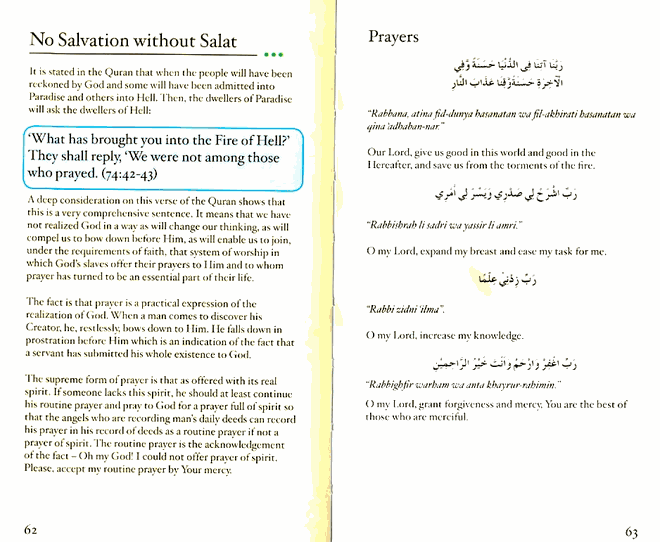 No Salvation without Salat
It is stated in the Quran that when the people will have been
reckoned by God and some will have been admitted into
Paradise and others into Hell. Then, the dwellers of Paradise
will ask the dwellers of Hell:
‘What has brought you into the Fire of Hell?’
They shall reply, ‘We were not among those
who prayed. (74:42-43)
A deep consideration on this verse of the Quran shows that
this is a very comprehensive sentence. It means that we have
not realized God in a way as will change our thinking, as will
compel us to bow down before Him, as will enable us to join,
under the requirements of faith, that system of worship in
which God's slaves offer their prayers to Him and to whom
prayer has turned to be an essential part of their life.
The fact is that prayer is a practical expression of the
realization of God. When a man comes to discover his
Creator, he, restlessly, bows down to Him. He falls down in
prostration before Him which is an indication of the fact that
a servant has submitted his whole existence to God.
The supreme form of prayer is that as offered with its real
spirit. If someone lacks this spirit, he should at least continue
his routine prayer and pray to God for a prayer full of spirit so
that the angels who are recording man's daily deeds can record
his prayer in his record of deeds as a routine prayer if not a
prayer of spirit. The routine prayer is the acknowledgement
of the fact – Oh my God! I could not offer prayer of spirit.
Please, accept my routine prayer by Your mercy.
62
Prayers
رَبَّنَا آتِنَا فِي الدُّنْيَا حَسَنَةً وَّفِي
الْآخِرَةِ حَسَنَةً وَّقِنَا عَذَابَ النَّارِ
“Rabbana, atina fid-dunya hasanatan wa fil-akhirati hasanatan wa
qina ‘adhaban-nar.”
Our Lord, give us good in this world and good in the
Hereafter, and save us from the torments of the fire.
رَبِّ اشْرَحْ لِي صَدْرِي وَيَسِّرْ لِي أَمْرِي
“Rabbishrah li sadri wa yassir li amri.”
O my Lord, expand my breast and ease my task for me.
رَبِّ زِدْنِيْ عِلْمًا
“Rabbi zidni ‘ilma”.
O my Lord, increase my knowledge.
رَبِّ اغْفِرْ وَارْحَمْ وَأَنْتَ خَيْرُ الرَّاحِمِيْنَ
“Rabbighfir warham wa anta khayrur-rahimin.”
O my Lord, grant forgiveness and mercy. You are the best of
those who are merciful.
63